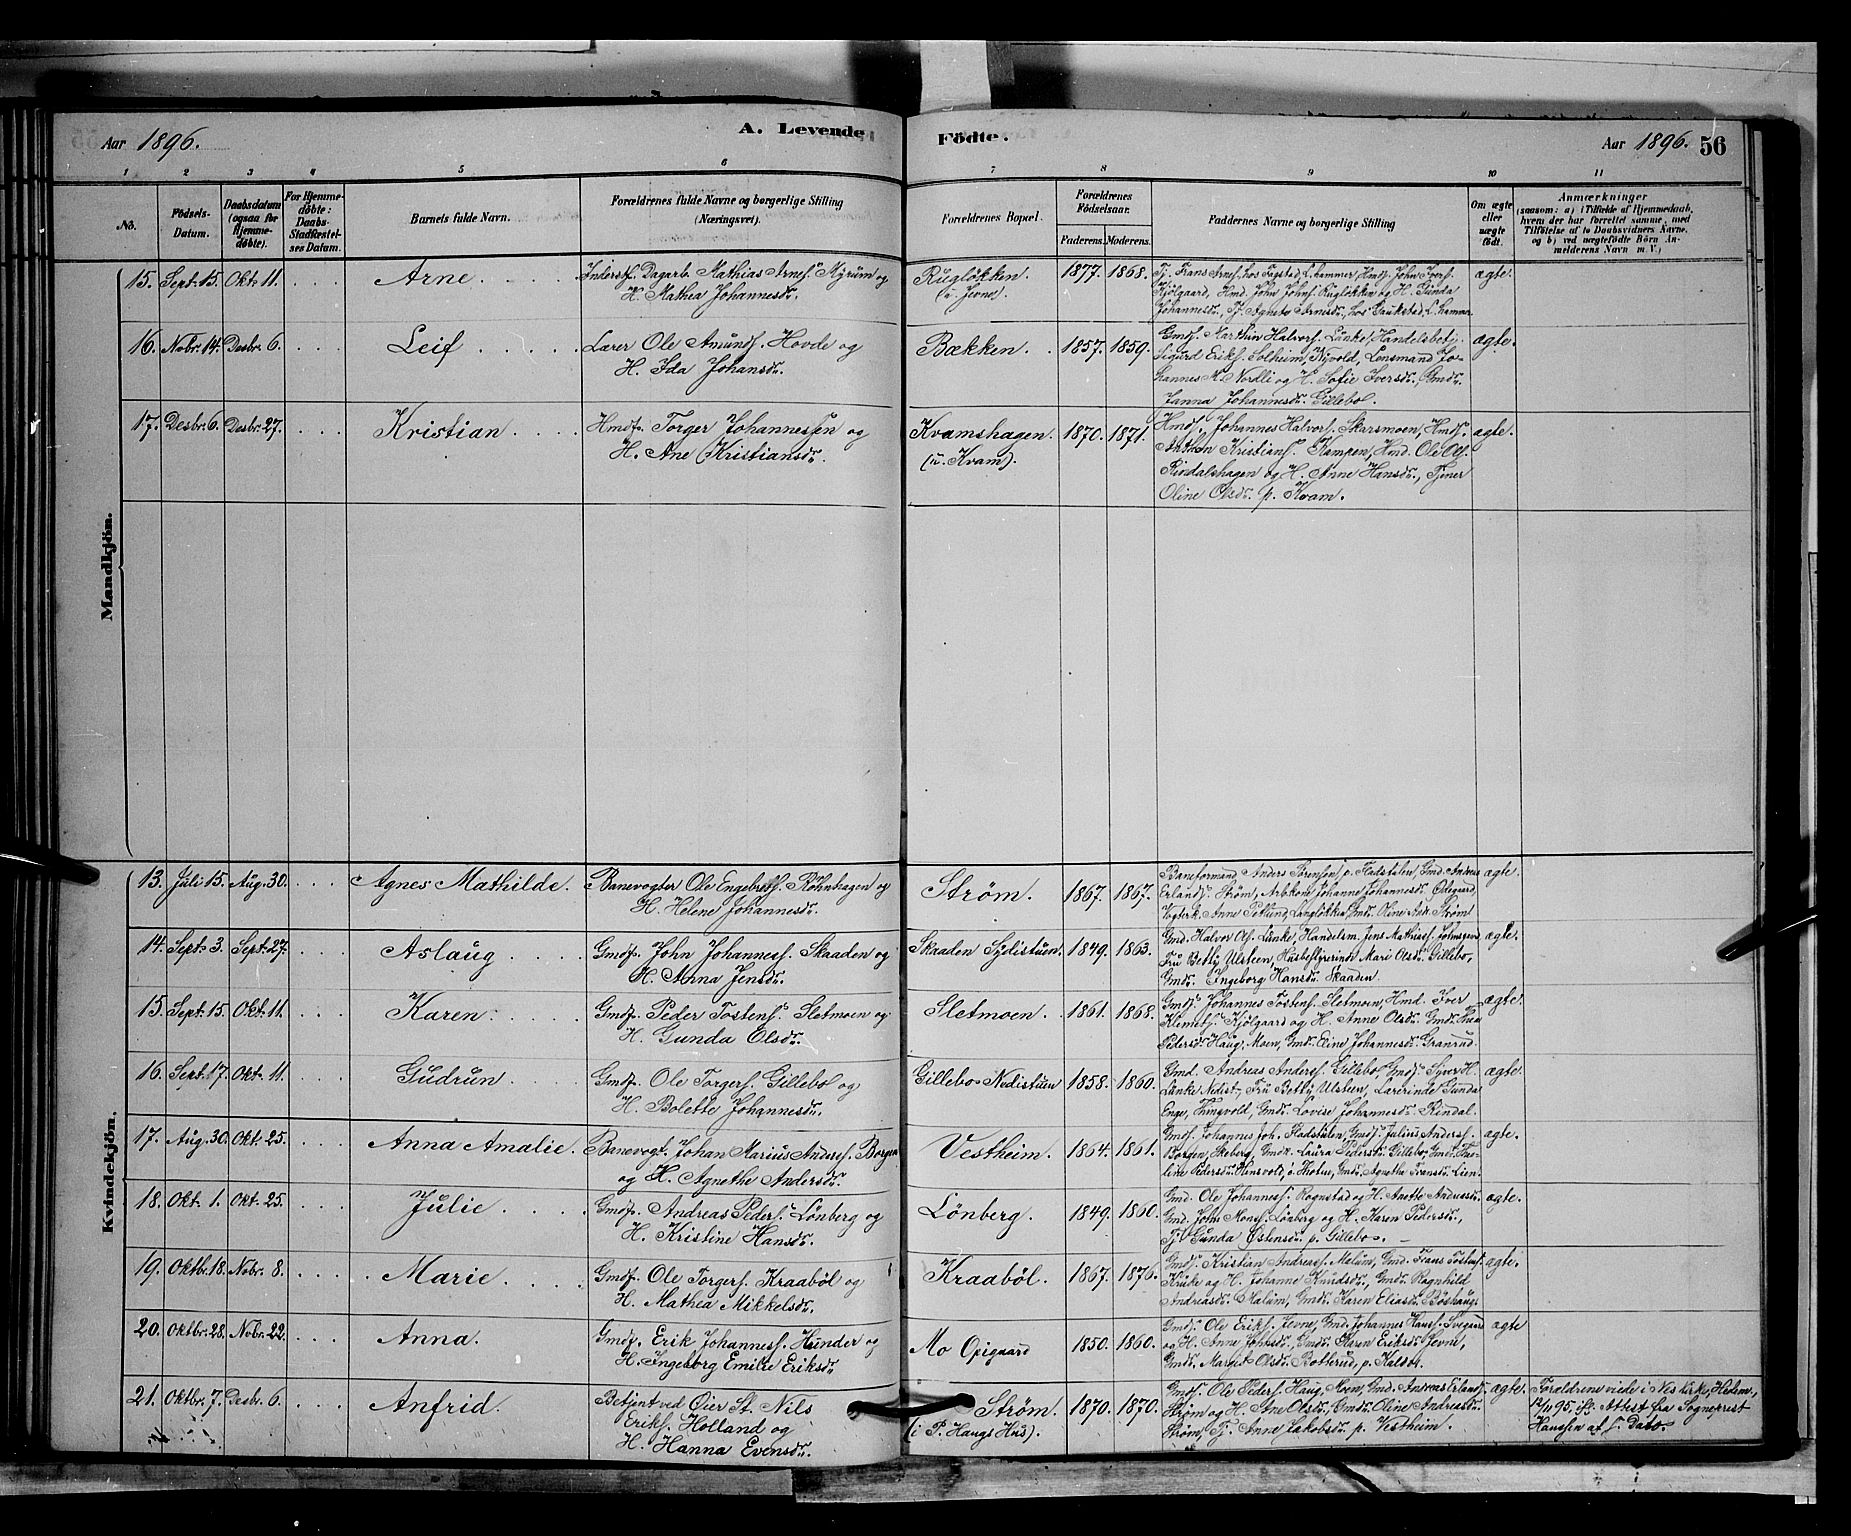 Aar 1896. A. Levende Födte. Aar 1896. 56
1 2 3 4 5 6 7 8 9 10 11
No. Födsels-Datum. Daabsdatum (ogsaa for Hjemme-døbte). For Hjemme-døbte: Daabs-Stadfæstelses Datum. Barnets fulde Navn. Forældrenes fulde Navne og borgerlige Stilling (Næringsvei). Forældrenes Bopæl. Forældrenes Födselsaar. Faderens. Moderens. Faddernes Navne og borgerlige Stilling Om ægte eller uægte födt. Anmærkninger (saasom: a) i Tilfælde af Hjemmedaab, hvem der har forrettet samme, med Tilföielse af to Daabsvidners Navne, og b) ved uægtefödte Börn Anmelderens Navn m. V.)
Mandkjön.
15. Sept. 15. Okt. 11. Arne Inderst, Dagarb. Mathias Arnes. Myrum og
H. Mathea Johannesdr.
Rugløkken
(u. Jevne).
1877. 1868.
Johannesdr., Tj. Agnete Arnesdr.
ægte.
16. Nobr. 14. Desbr. 6. Leif Lærer Ole Amunds. Hovde og
H. Ida Johansdr.
Bækken. 1857. 1859.
Gmdf. Marthin Halvors. Lunke, Handelsbetj.
Sigurd Eriks. Solheim, Nyvold, Lensmand Jo-
hannes M. Nordli og H. Sofie Iversdr., Gmdr.
Janna Johannesdr. Gillebo.
ægte.
17. Desbr. 6. Desbr. 27. Kristian Hmdf. Torger Johannessen og
H. Ane Kristiansdr.
Kvamshagen.
(u. Kvam).
1870. 1871.
Hmdf. Johannes Halvors. Skarsmoen, Hmdf.
Anthon Kristians. Kampen, Hmd. Ole Ols.
Rindalshagen og H. Anne Hansdr., Tjener
Oline Olsdr. p. Kvam.
ægte.
Kvindekjön.
13. Juli 15. Aug. 30. Agnes Mathilde. Banevogter Ole Engebrets. Rohnhagen og
H. Helene Johannesdr.
Strøm. 1867. 1867.
Baneformand Anders Sørensen p. Fladstulen, Gmd. Andreas
Erlands. Strøm, Arbkone Johanne Johannesdr. Ødegaard,
ægte.
14. Sept. 3. Sept. 27. Aslaug Gmdf. John Johanness. Skaaden og
H. Anna Jensdr.
Skaaden Sydistuen. 1849. 1863.
Gmd. Halvor Ols. Lunke, Handelsm. Jens Mathiass.
Fru Betty Ulsteen, Husbestyrerinde Mari Olsdr. Gillebo,
Gmdr. Ingeborg Hansdr. Skaaden.
ægte.
15. Sept. 15. Okt. 11. Karen Gmdf. Peder Tostens. Sletmoen og
H. Gunda Olsdr.
Sletmoen. 1861. 1868.
Gmdf. Johannes Tostens. Sletmoen, Hmd. Iver
Klemets. Kjölgaard og H. Anne Olsdr. Gmdr. Thea
Pedersdr. Haug, Moen, Gmdr. Eline Johannesdr. Granrud.
ægte.
16. Sept. 17. Okt. 11. Gudrun Gmdf. Ole Torgers. Gillebo og
H. Bolette Johannesdr.
Gillebo Nedistuen 1858. 1860.
Gmd. Andreas Anders. Gillebo, Gmdf. Syver H.
Lunke Nedist., Fru Betty Ulsteen, Lærerinde Gunda
Enge, Tingvold, Gmdr. Lovise Johannesdr. Rindal.
ægte.
17. Aug. 30. Okt. 25. Anna Amalie. Banevogt. Johan Marius Anders. Borgen
og H. Agnethe Andersdr.
Vestheim. 1864. 1861.
Gmdf. Johannes Joh. Fladstulen, Gmdf. Julius Anders.
Borgen, Skeberg, Gmdr. Laura Pedersdr. Gillebo,
ægte.
18. Okt. 1. Okt. 25. Julie Gmdf. Andreas Peders. Lönberg og
H. Kristine Hansdr.
Lönberg. 1849. 1860.
Gmd. Ole Johanness. Rognstad og H. Anette Andreasdr.
Gmd. John Mons. Lönberg og H. Karen Pedersdr.,
Tj. Gunda Østensdr. p. Gillebo.
ægte.
19. Oktbr. 18. Nobr. 8. Marie Gmdf. Ole Torgers. Kraaböl og
H. Mathea Mikkelsdr.
Kraaböl. 1867. 1876.
Gmdf. Kristian Andreass. Mælum, Gmd. Frans Tostens.
Kruke og H. Johanne Knudsdr., Gmdr. Ragnhild
Andreasdr. Mælum, Gmdr. Karen Eliasdr. Böshaug.
ægte.
20. Oktbr. 28. Nobr. 22. Anna. Gmdf. Erik Johanness. Hunder og
H. Ingeborg Emilie Eriksdr.
Mo Opigaard 1850. 1860.
Gmdf. Ole Eriks. Jevne, Gmd. Johannes Hans. Svegaard
og H. Anne Johnsdr., Gmdr. Karen Eriksdr. Jevne,
Gmdr. Marie Olsdr. Botterud, p. Kalsör.
ægte
21. Oktbr. 7. Desbr. 6. Anfrid. Betjent ved Öier St. Nils
Eriks. Holland og
H. Hanna Evensdr.
Strøm.
(i P. Haugs Hus).
1870. 1870.
Gmdf. Ole Peders. Haug, Moen, Gmd. Andreas Erlands.
Strøm og H. Ane Olsdr., Gmdr. Oline Andreasdr.
Strøm, Tj. Anne Jakobsdr. p. Vestheim.
ægte.
Forældrene viede i Nes Kirke, Hedem.,
Attest fra Sogneprest
Hanssen af s. Dato.